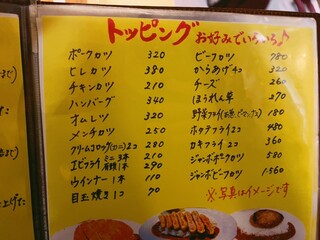 トッピング お好みでいろいろ♪
ポークカツ 320
ヒレカツ 380
チキンカツ 210
ハンバーグ 340
オムレツ 320
メンチカツ 250
クリームコロッケ(カニ)2コ 280
エビフライ ミニ3本 210
有頭1本 290
ウインナー1本 110
目玉焼き1コ 70
ビーフカツ 780
からあげ4コ 320
チーズ 260
ほうれん草 270
野菜フライ 180
ホタテフライ2コ 480
カキフライ2コ 360
ジャンボポークカツ 580
ジャンボビーフカツ 1.560
※写真はイメージです